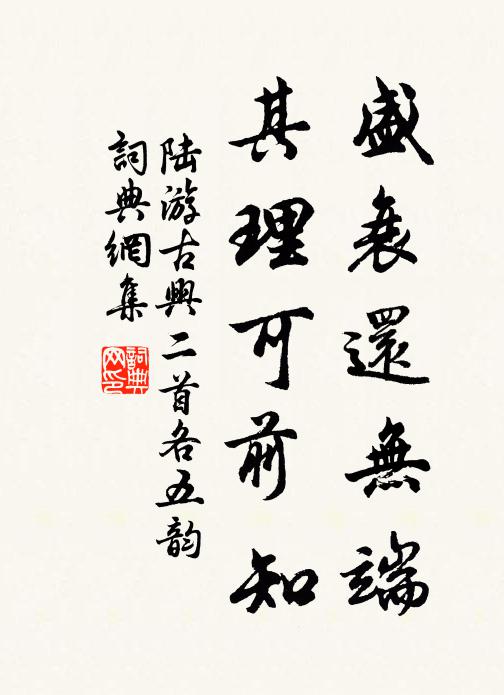 盛衰還無端
其理可前知
陸游古興二首各五韵
詞典網集
詞典网印